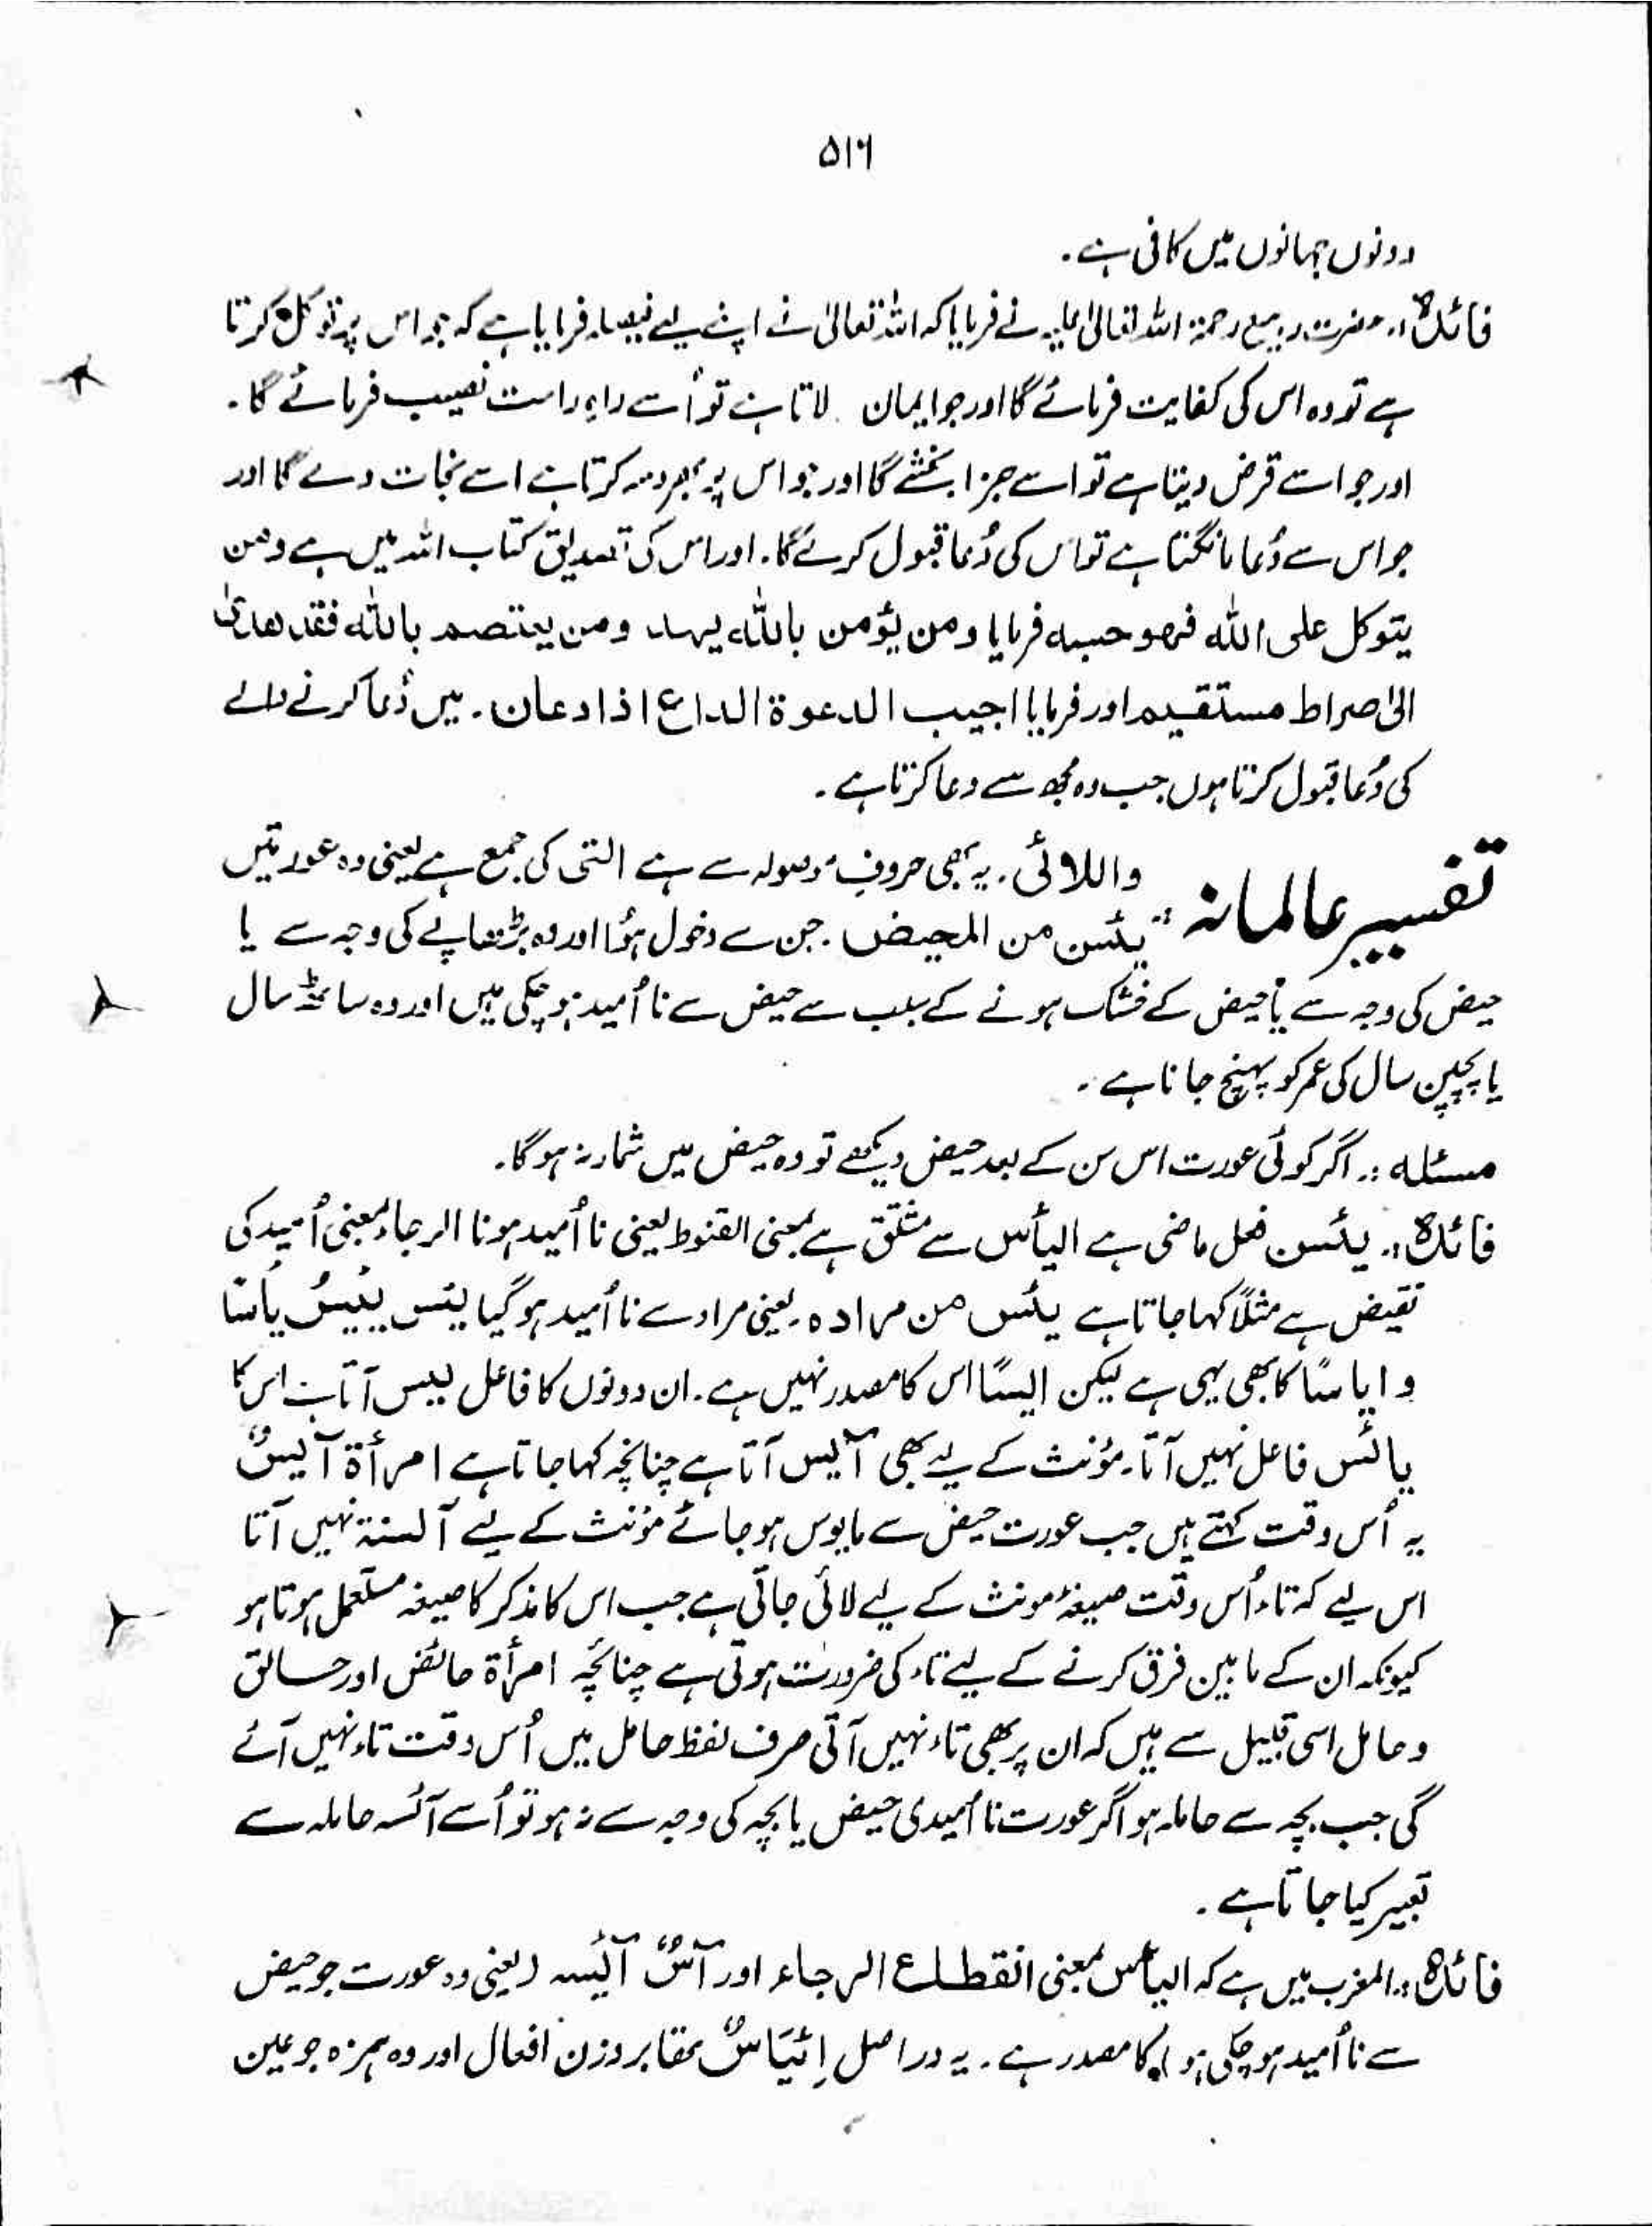 ۵۱۶
دونوں جہانوں میں کافی ہے۔
فائدہ:۔ حضرت ربیع رحمۃ اللہ تعالیٰ علیہ نے فرمایا کہ اللہ تعالیٰ نے اپنے لیے فیصلہ فرمایا ہے کہ جو اس پر توکل کرتا
ہے تو وہ اس کی کفایت فرمائے گا اور جو ایمان لاتا ہے تو اُسے راہِ راست نصیب فرمائے گا۔
اور جو اسے قرض دیتا ہے تو اسے جزا بخشے گا اور جو اس پر بھروسہ کرتا ہے اسے نجات دے گا اور
جو اس سے دُعا مانگتا ہے تو اس کی دُعا قبول کرے گا۔ اور اس کی تصدیق کتاب اللہ میں ہے ومن
یتوکل علی اللہ فھو حسبه فرمایا ومن یؤمن باللہ یہد ومن یعتصم باللہ فقد ھدی
الیٰ صراط مستقیم اور فرمایا اجیب الدعوة الداع اذا دعان۔ میں دُعا کرنے والے
کی دُعا قبول کرتا ہوں جب وہ مجھ سے دعا کرتا ہے۔
تفسیر عالمانہ :۔ واللائی۔ یہ بھی حروفِ موصولہ سے ہے التی کی جمع ہے یعنی وہ عورتیں
یئسن من المحیض۔ جن سے دخول ہُوا اور وہ بڑھاپے کی وجہ سے یا
حیض کی وجہ سے یا حیض کے خشک ہونے کے سبب سے حیض سے نا اُمید ہو چکی ہیں اور وہ ساٹھ سال
یا پچپن سال کی عمر کو پہنچ جانا ہے۔
مسئلہ :۔ اگر کوئی عورت اس سن کے بعد حیض دیکھے تو وہ حیض میں شمار نہ ہو گا۔
فائدہ :۔ یئسن فعل ماضی ہے الیأس سے مشتق ہے بمعنی القنوط یعنی نا اُمید ہونا الرجاء بمعنی اُمید کی
نقیض ہے مثلاً کہا جاتا ہے یئس من مرادہ۔ یعنی مراد سے نا اُمید ہو گیا یئس ییئسُ یأسًا
و ایاسًا کا بھی یہی ہے لیکن ایسًا اس کا مصدر نہیں ہے۔ ان دونوں کا فاعل یئس آتا ہے اس کا
یائس فاعل نہیں آتا۔ مؤنث کے لیے بھی آئیس آتا ہے چنانچہ کہا جاتا ہے امرأة آئیسٌ
یہ اُس وقت کہتے ہیں جب عورت حیض سے مایوس ہو جائے مؤنث کے لیے آئسنة نہیں آتا
اس لیے کہ تاء اُس وقت صیغۂ مونث کے لیے لائی جاتی ہے جب اس کا مذکر کا صیغہ مستعمل ہوتا ہو
کیونکہ ان کے مابین فرق کرنے کے لیے تاء کی ضرورت ہوتی ہے چنانچہ امرأة حائض اور حسالق
و حامل اسی قبیل سے ہیں کہ ان پر بھی تاء نہیں آتی صرف لفظ حامل میں اُس وقت تاء نہیں آئے
گی جب بچہ سے حاملہ ہو اگر عورت نا اُمیدی حیض یا بچہ کی وجہ سے نہ ہو تو اُسے آئسہ حاملہ سے
تعبیر کیا جاتا ہے۔
فائدہ :۔ المغرب میں ہے کہ الیأس بمعنی انقطاع الرجاء اور آسٌ آئیسہ (یعنی وہ عورت جو حیض
سے نا اُمید ہو چکی ہو) کا مصدر ہے۔ یہ دراصل اِئیَاسٌ تھا بروزن افعال اور وہ ہمزہ جو عین